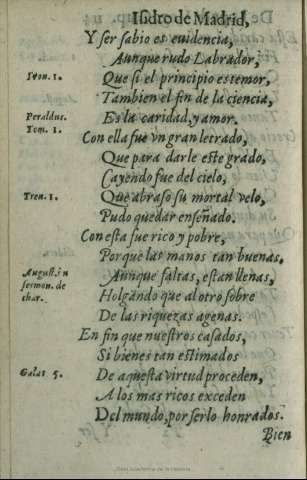 Isidro de Madrid,
Y ser sabio es euidencia,
Aunque rudo Labrador,
Que si el principio es temor,
Tambien el fin de la ciencia,
Es la caridad, y amor.
Con ella fue vn gran letrado,
Que para darle este grado,
Cayendo fue del cielo,
Que abraso su mortal velo,
Pudo quedar enseñado.
Con esta fue rico y pobre,
Porque las manos tan buenas,
Aunque faltas, estan llenas,
Holgando que al otro sobre
De las riquezas agenas.
En fin que nuestros casados,
Si bienes tan estimados
De aquesta virtud proceden,
A los mas ricos exceden
Del mundo, por serlo honrados.
Bien
Peraldus.
Tom. 1.
Tren. 1.
August. in
sermon. de
char.
Galat 5.